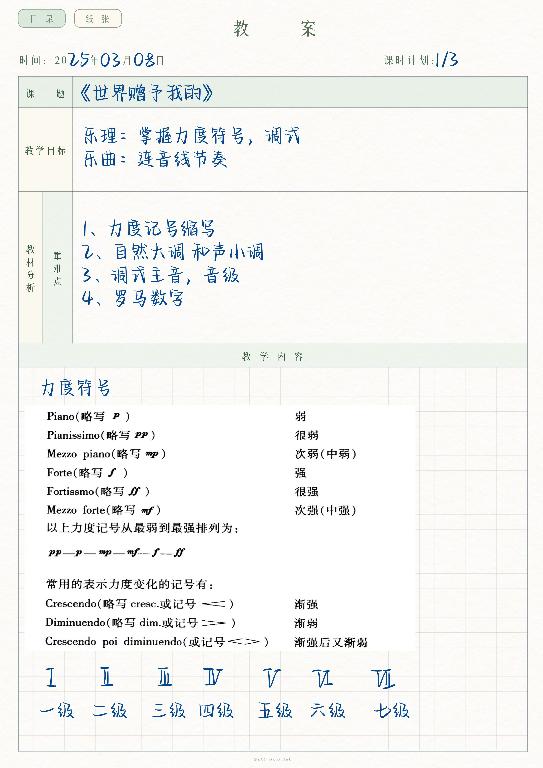 目录 纸张
教 案
时间: 2025年03月08日 课时计划:1/3
课 题 《世界赠予我的》
教学目标
乐理：掌握力度符号，调式
乐曲：连音线节奏
教材分析
重难点
1、力度记号缩写
2、自然大调 和声小调
3、调式主音，音级
4、罗马数字
教 学 内 容
力度符号
Piano(略写 p ) 弱
Pianissimo(略写 pp ) 很弱
Mezzo piano(略写 mp ) 次弱(中弱)
Forte(略写 f ) 强
Fortissmo(略写 ff ) 很强
Mezzo forte(略写 mf ) 次强(中强)
以上力度记号从最弱到最强排列为:
pp—p—mp—mf—f—ff
常用的表示力度变化的记号有:
Crescendo(略写 cresc.或记号 ) 渐强
Diminuendo(略写 dim.或记号 ) 渐弱
Crescendo poi diminuendo(或记号 ) 渐强后又渐弱
Ⅰ Ⅱ Ⅲ Ⅳ Ⅴ Ⅵ Ⅶ
一级 二级 三级 四级 五级 六级 七级